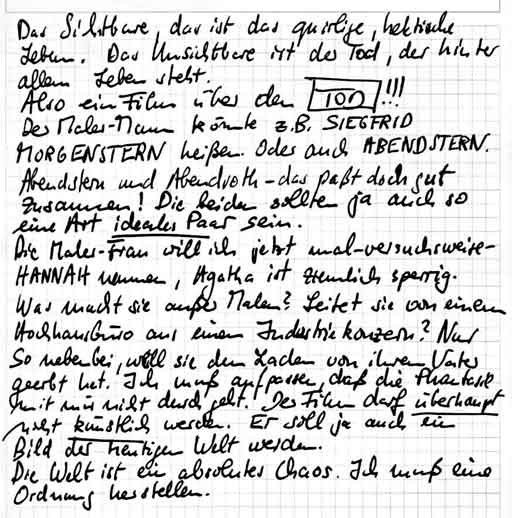 Das Sichtbare, das ist das quirlige, hektische
Leben. Das Unsichtbare ist der Tod, der hinter
allem Leben steht.
Also ein Film über den TOD!!!
Der Maler-Mann könnte z.B. SIEGFRID
MORGENSTERN heißen. Oder auch ABENDSTERN.
Abendstern und Abendroth - das paßt doch gut
zusammen! Die beiden sollten ja auch so
eine Art ideales Paar sein.
Die Maler-Frau will ich jetzt mal-versuchsweise-
HANNAH nennen, Agatha ist ziemlich sperrig.
Was macht sie außer Malen? Leitet sie von einem
Hochhausbüro aus einen Industriekonzern? Nur
so nebenbei, weil sie den Laden von ihrem Vater
geerbt hat. Ich muß aufpassen, daß die Phantasie
mit mir nicht durch geht. Der Film darf überhaupt
nicht künstlich werden. Er soll ja auch ein
Bild der heutigen Welt werden.
Die Welt ist ein absolutes Chaos. Ich muß eine
Ordnung herstellen.